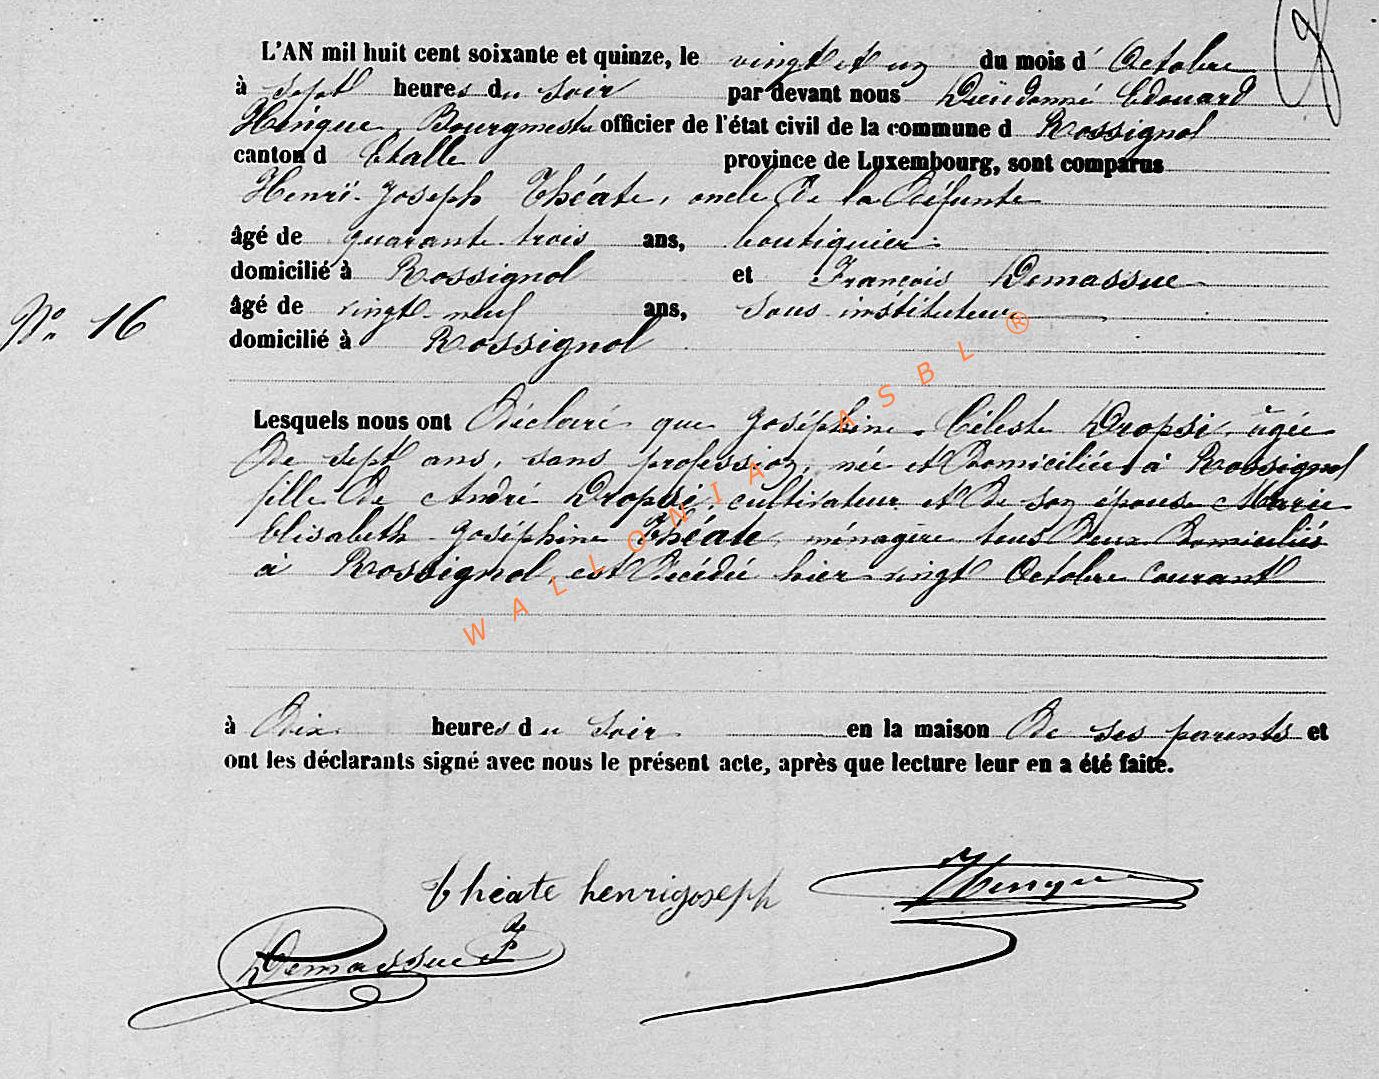 L'AN mil huit cent soixante et quinze, le vingt et un du mois d' Octobre
à sept heures du soir par devant nous Dieudonné Edouard
Hinque, Bourgmestre officier de l'état civil de la commune d Rossignol
canton d Etalle province de Luxembourg, sont comparus
Henri-Joseph Théate, oncle de la défunte
âgé de quarante-trois ans, boutiquier
domicilié à Rossignol et François Demassue
âgé de vingt-neuf ans, sous-instituteur
N° 16
domicilié à Rossignol
Lesquels nous ont déclaré que Joséphine Céleste Dropsi, âgée
de sept ans, sans profession, née et domiciliée à Rossignol
fille de André Dropsi, cultivateur et de son épouse Marie
Elisabeth-Joséphine Théate, ménagère tous deux domiciliés
à Rossignol, est décédée hier vingt Octobre courant
à dix heures du soir en la maison de ses parents et
ont les déclarants signé avec nous le présent acte, après que lecture leur en a été faite.
théate henrijoseph Hinque
Demassue F
WALLONIA ASBL ®